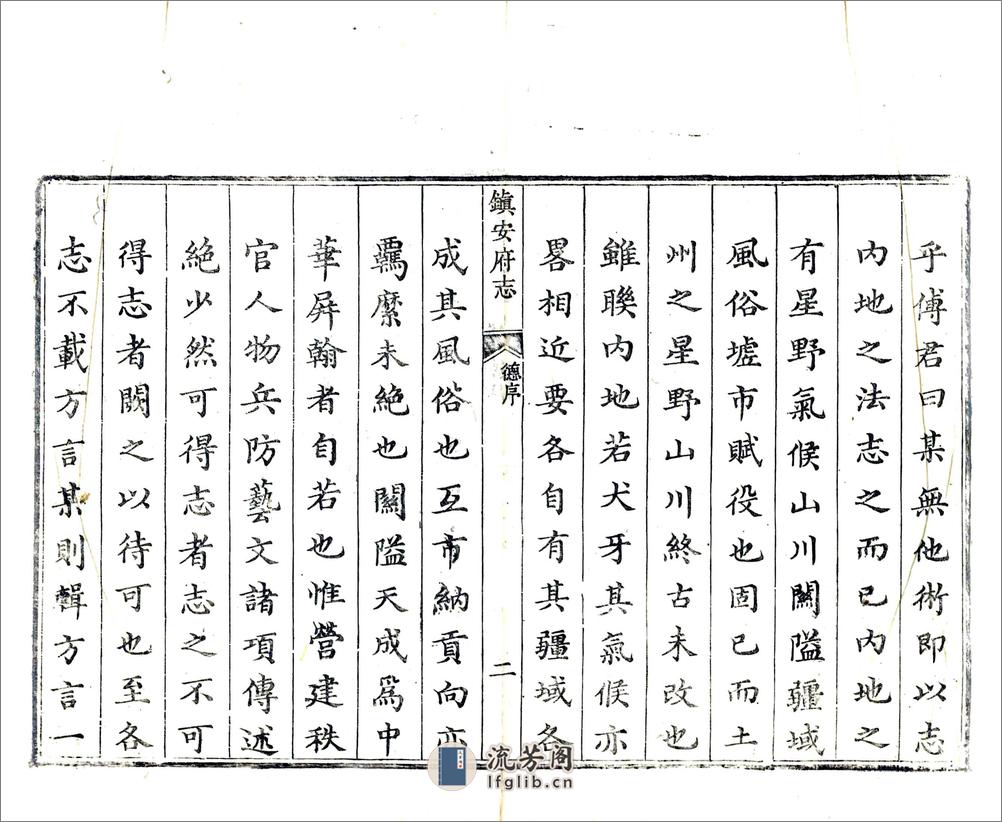 乎傅君曰某無他術即以志
內地之法志之而已內地之
有星野氣候山川關隘疆域
風俗墟市賦役也固已而土
州之星野山川終古未改也
雖聯內地若犬牙其氣候亦
畧相近要各自有其疆域各
鎮安府志
德序
二
成其風俗也互市納貢向亦
羈縻未絶也關隘天成爲中
華屏翰者自若也惟營建秩
官人物兵防藝文諸項傳述
絶少然可得志者志之不可
得志者闕之以待可也至各
志不載方言某則輯方言一
流芳阁
lfglib.cn